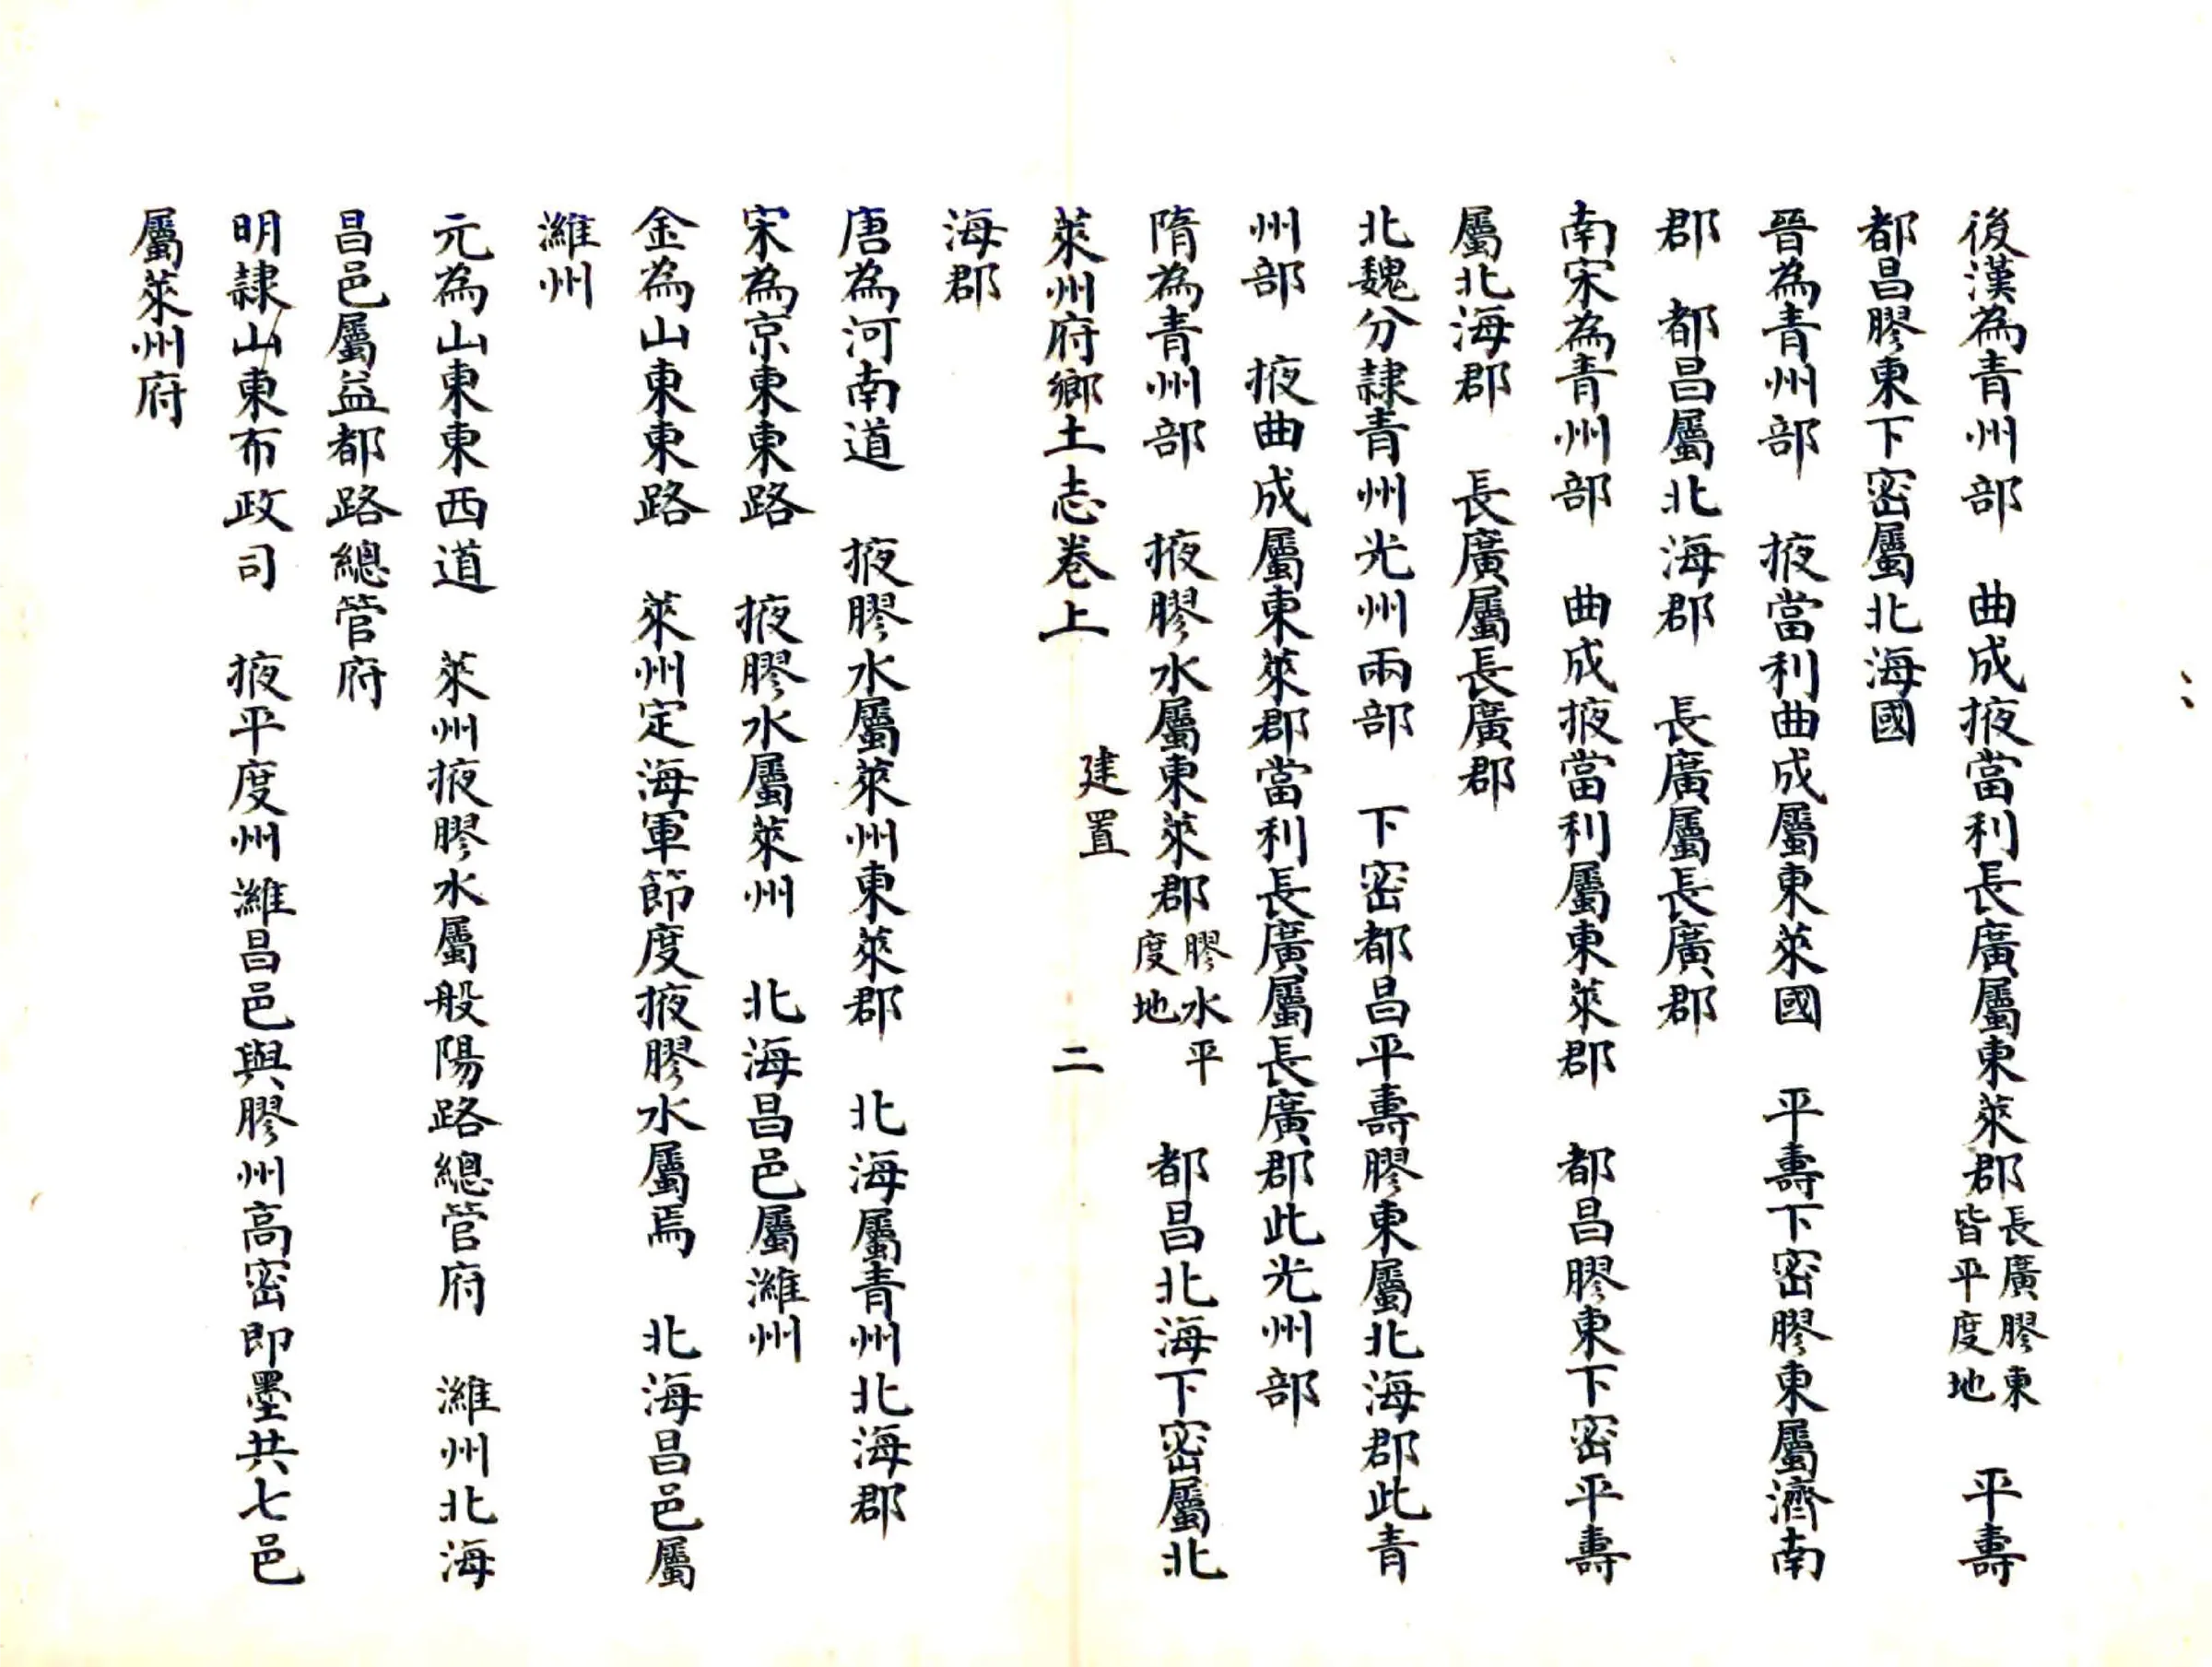 後漢為青州部　曲成掖當利長廣屬東萊郡長廣膠東皆平度地　平壽
都昌膠東下密屬北海國
晉為青州部　掖當利曲成屬東萊國　平壽下密膠東屬濟南
郡　都昌屬北海郡　長廣屬長廣郡
南宋為青州部　曲成掖當利屬東萊郡　都昌膠東下密平壽
屬北海郡　長廣屬長廣郡
北魏分隷青州光州兩部　下密都昌平壽膠東屬北海郡此青
州部　掖曲成屬東萊郡當利長廣屬長廣郡此光州部
隋為青州部　掖膠水屬東萊郡膠水平度地　都昌北海下密屬北
萊州府鄉土志卷上　建置　二
海郡
唐為河南道　掖膠水屬萊州東萊郡　北海屬青州北海郡
宋為京東東路　掖膠水屬萊州　北海昌邑屬濰州
金為山東東路　萊州定海軍節度掖膠水屬焉　北海昌邑屬
濰州
元為山東東西道　萊州掖膠水屬般陽路總管府　濰州北海
昌邑屬益都路總管府
明隷山東布政司　掖平度州濰昌邑與膠州高密即墨共七邑
屬萊州府